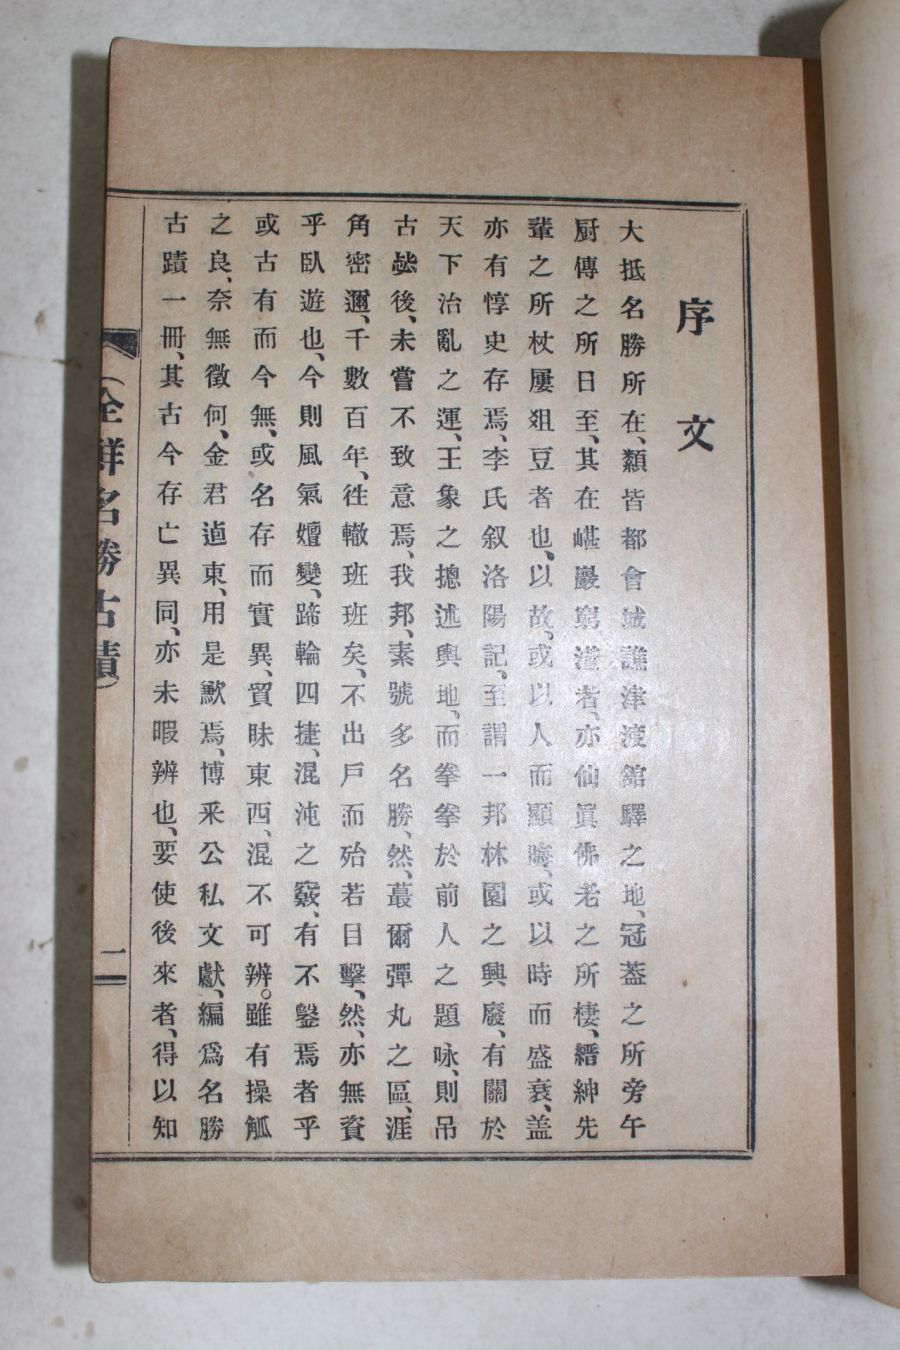 序文
大抵名勝所在、類皆都會城譙津渡館驛之地、冠蓋之所旁午
厨傳之所日至、其在嵁巖窮瀣者、亦仙眞佛老之所棲、縉紳先
輩之所杖屨俎豆者也、以故、或以人而顯晦、或以時而盛衰、盖
亦有惇史存焉、李氏叙洛陽記、至謂一邦林園之興廢、有關於
天下治亂之運、王象之摠述輿地、而拳拳於前人之題咏、則吊
古毖後、未嘗不致意焉、我邦、素號多名勝、然、蕞爾彈丸之區、涯
角密邇、千數百年、徃轍班班矣、不出戶而殆若目擊、然、亦無資
乎臥遊也、今則風氣嬗變、蹄輪四捷、混沌之竅、有不鑿焉者乎
或古有而今無、或名存而實異、貿昧東西、混不可辨。雖有操觚
之良、奈無徵何、金君逌東、用是歉焉、博釆公私文獻、編爲名勝
古蹟一冊、其古今存亡異同、亦未暇辨也、要使後來者、得以知
(全鮮名勝古蹟)
二